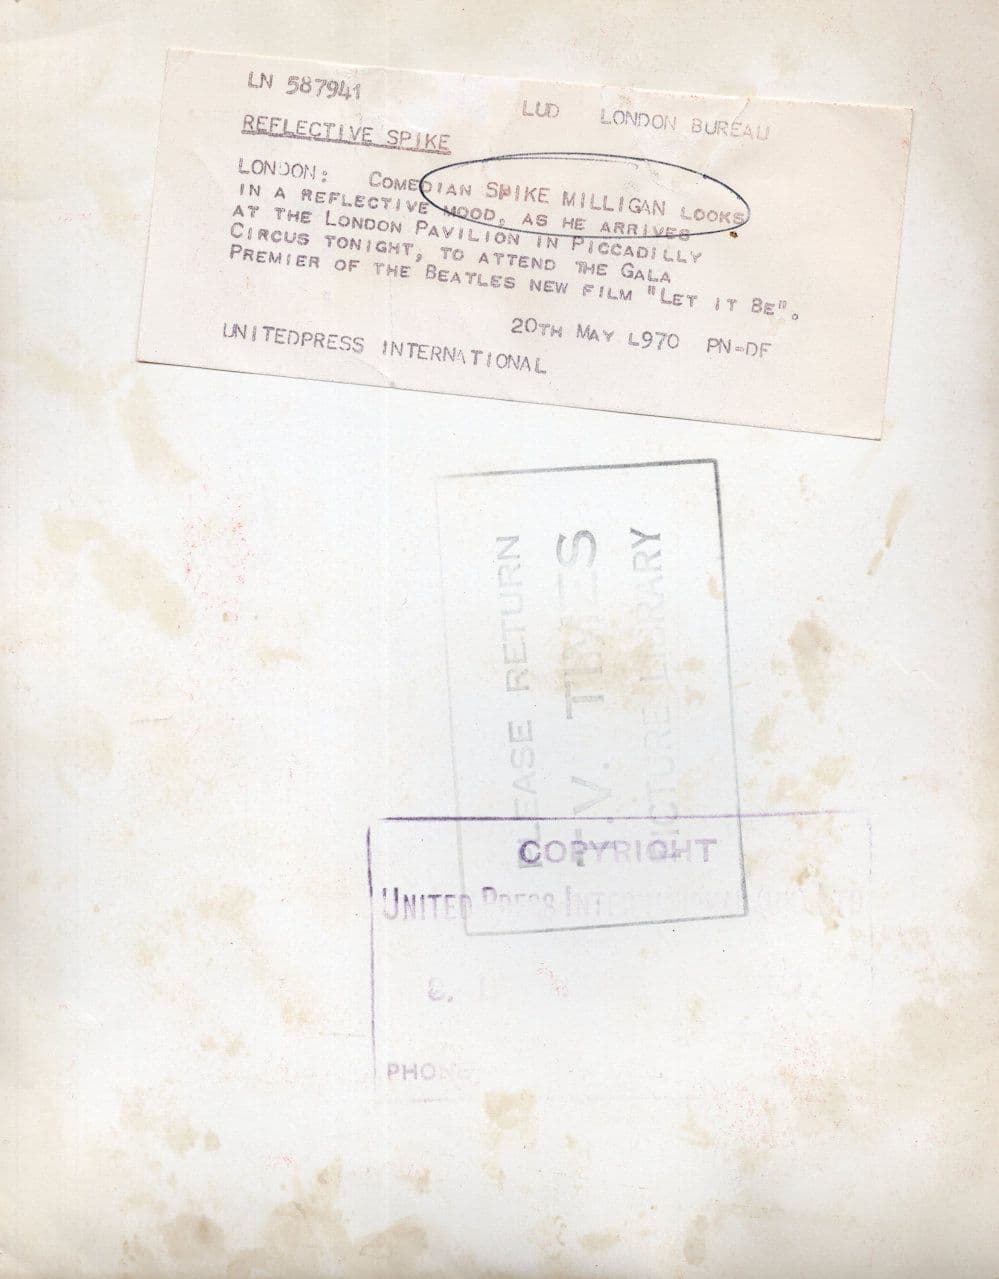 LN 587941
LUD LONDON BUREAU
REFLECTIVE SPIKE
LONDON: COMEDIAN SPIKE MILLIGAN LOOKS
IN A REFLECTIVE MOOD, AS HE ARRIVES
AT THE LONDON PAVILION IN PICCADILLY
CIRCUS TONIGHT, TO ATTEND THE GALA
PREMIER OF THE BEATLES NEW FILM "LET IT BE".
20TH MAY L970 PN-DF
UNITEDPRESS INTERNATIONAL
PLEASE RETURN
T.V. TIMES
PICTURE LIBRARY
COPYRIGHT
UNITED PRESS INTERNATIONAL (UK) LTD
8,
PHONE